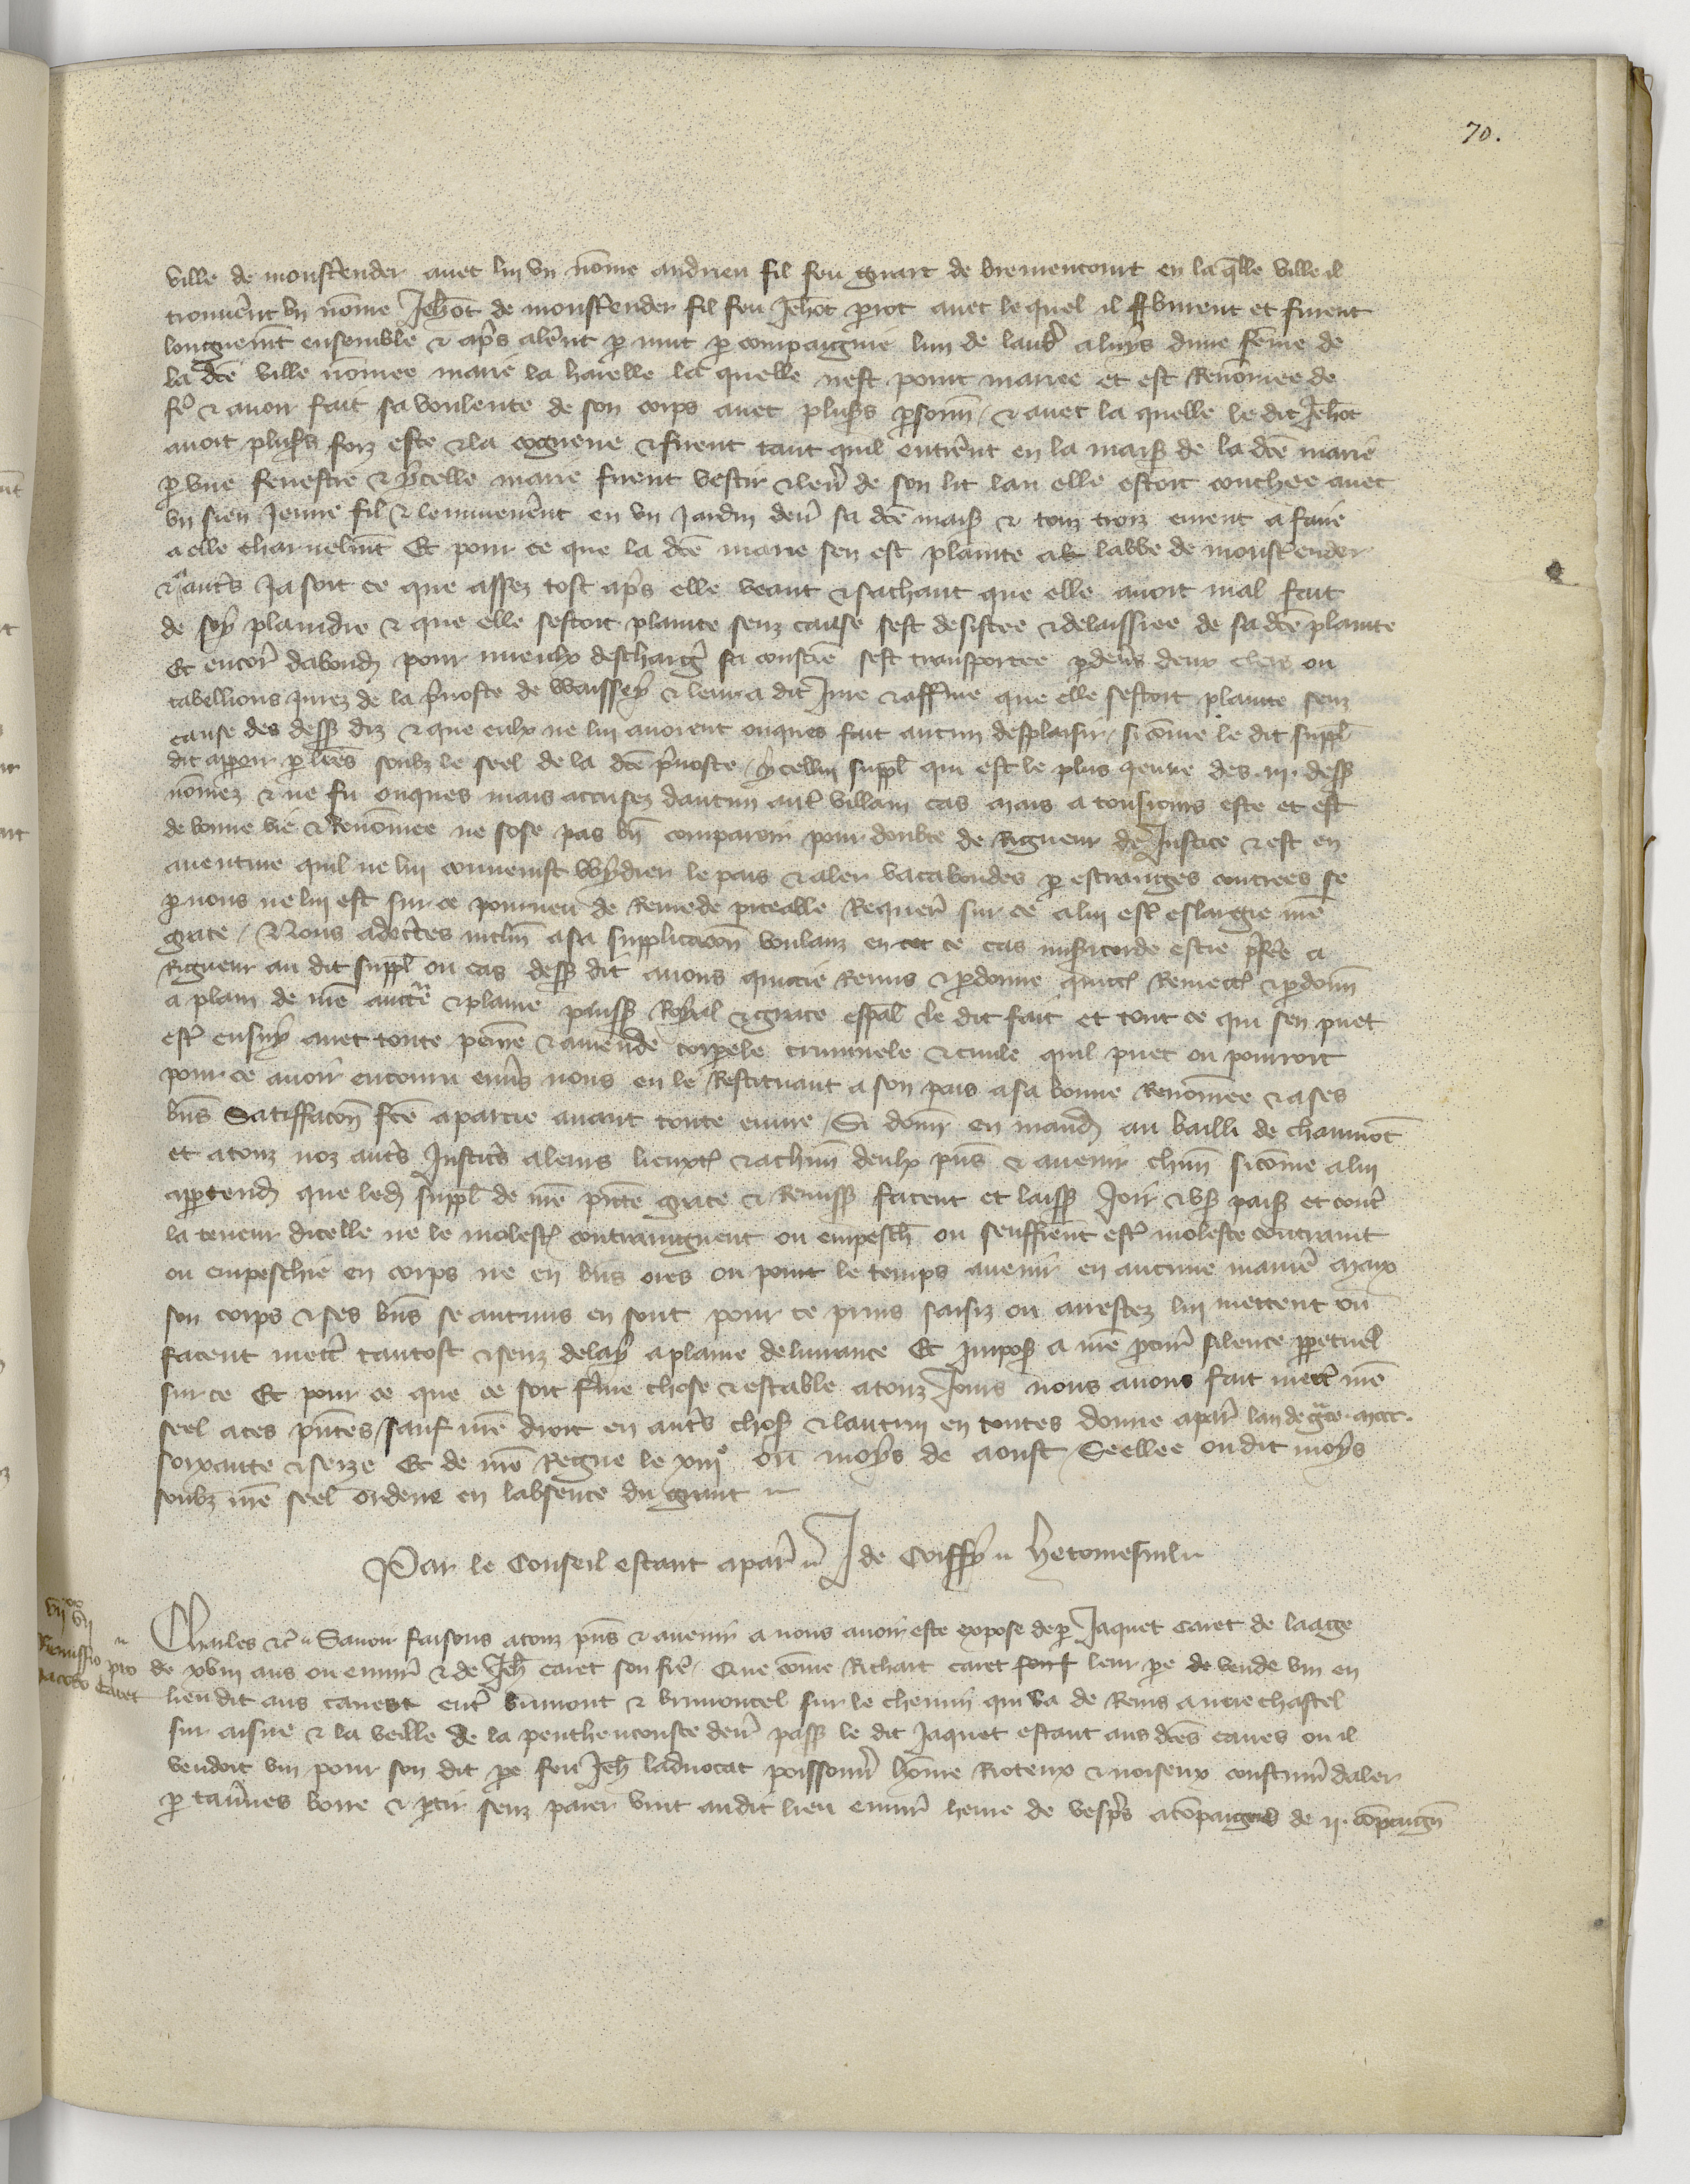 70.
ville de monstender avec lui un nōme andrieu fil feu girart de bremencourt en la qlle ville il
trouverēt un nōme Jehōt de monstender fil feu Jehōt piot avec lequel il burent et furent
longuemt ensemble & aps alerēt p nuit p compaignie lun de lautre a luys dune fēme de
la dce ville nōmee marie la harelle la quelle nest point mariee et est renōmee de
& avoir fait sa voulente de son corps avec plus psonn & avec la quelle le dit Jehōt
avoit plus foiz este & la cogneue & firent tant quil entrerēt en la mais de la dce marie
p une fenestre & ycelle marie firent vestir & lever de son lit lau elle estoit couchee avec
un sien jeune fil & lemmenerēt en un jardin derr sa dce mais & touz troiz eurent afaire
a elle charnelmt Et pour ce que la dce marie sen est plainte a labbe de monstender
& a autrs ja soit ce que assez tost aps elle veant & sachant que elle avoit mal fait
de soy plaindre & que elle sestoit plainte senz cause sest desistee & delaissiee de sa dce plainte
Et encor dabond pour mieulx descharg sa conscie sest transportee p devs deux clers ou
tabellions jurez de la pvoste de Waissey & leur a dit jure & afferme que elle sestoit plainte senz
cause des dess diz & que eulx ne lui avoient onques fait aucun desplaisir si cōme le dit suppl
dit apparoir p lres soubz le seel de la dce pvoste ycellui suppl qui est le plus jeune des .iii. dess
nōmez & ne fu onques mais accusez daucun autre villain cas mais a tousjours este et est
de bonne vie & renōmee ne sose pas bn comparoir pour doubte de rigueur de Justice & est en
aventure quil ne lui convenist wydier le pais & aler vacabondes p estranges contrees se
p nous ne lui est sur ce pourveu de remede piteable Requer sur ce a lui estre eslargie nre
grace / Nous adectes inclin a sa supplicacon voulanz en ce cas misericorde estre pferee a
rigueur au dit suppl ou cas dess dit avons quictie remis & pdonne quict remect & pdonn
a plain de nre auctte & plaine puiss royal & grace espal le dit fait et tout ce qui sen puet
estre ensuy avec toute peine & amende corpele criminele & civile quil puet ou pourroit
pour ce avoir encouru envs nous en le restituant a son pais a sa bonne renōmee & a ses
bns Satiffacon fce a partie avant toute euvre / Si donn en mand au bailli de chaumōt
et a touz noz autrs Justicrs a leurs lieuxt & a chun deulx pns & avenir chun si cōme a lui
appartend que led suppl de nre pnte grace & remiss facent et laiss joir & us pais et contre
la teneur dicelle ne le molest contraingnent ou empesch ou seuffrent estre moleste contraint
ou empeschie en corps ne en bns ores ou pour le temps avenir en aucune manie maiz
son corps & ses bns se aucuns en sont pour ce prins saisiz ou arrestez lui mettent ou
facent mett tantost & senz delay a plaine delivrance Et impos a nre pcur silence ppetuel
sur ce Et pour ce que ce soit ferme chose & estable a touz jours nous avons fait mett nre
seel a ces pntes / sauf nre droit en autrs chos & lautrui en toutes donne a par lan de gce . mccc.
soixante & seize Et de nre Regne le xiiie ou moys de aoust / Seellee oudit moys
soubz nre seel ordene en labsence du grant
Par le Conseil estant a par J de Coiffy hetomesnil
VIIxx VII
Remissio pro
Jacobo Caret
Charles &c Savoir faisons a touz pns & avenir a nous avoir este expose de p Jaquet Caret de laage
de xviii ans ou envir & de Jeh caret son frere Que cōme Richart caret leur pe vende vin en
lieu dit aus caves entre brimont & brimoncel sur le chemin qui va de Reins a neufchastel
sur aisne & la veille de la penthecouste derr pass le dit Jaquet estant aus dces caves ou il
vendoit vin pour son dit pe feu Jeh ladvocat poissonnr hōme rioteux & noiseux coustumr daler
p tavnes boire & ptir senz paier vint audit lieu envir heure de vesprs acōpaignes de .ii. cōpaign